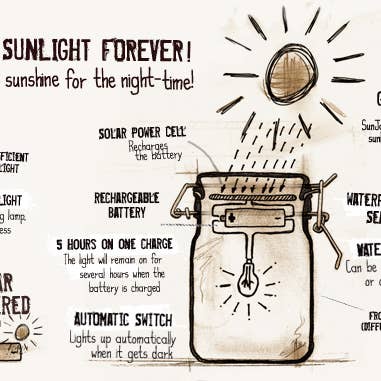 SUNLIGHT FOREVER!
sunshine for the night-time!
SOLAR POWER CELL
Recharges
the battery
RECHARGEABLE
BATTERY
5 HOURS ON ONE CHARGE
The light will remain on for
several hours when the
battery is charged
AUTOMATIC SWITCH
Lights up automatically
when it gets dark
LIGHT
lamp,
WATE
Can be
or